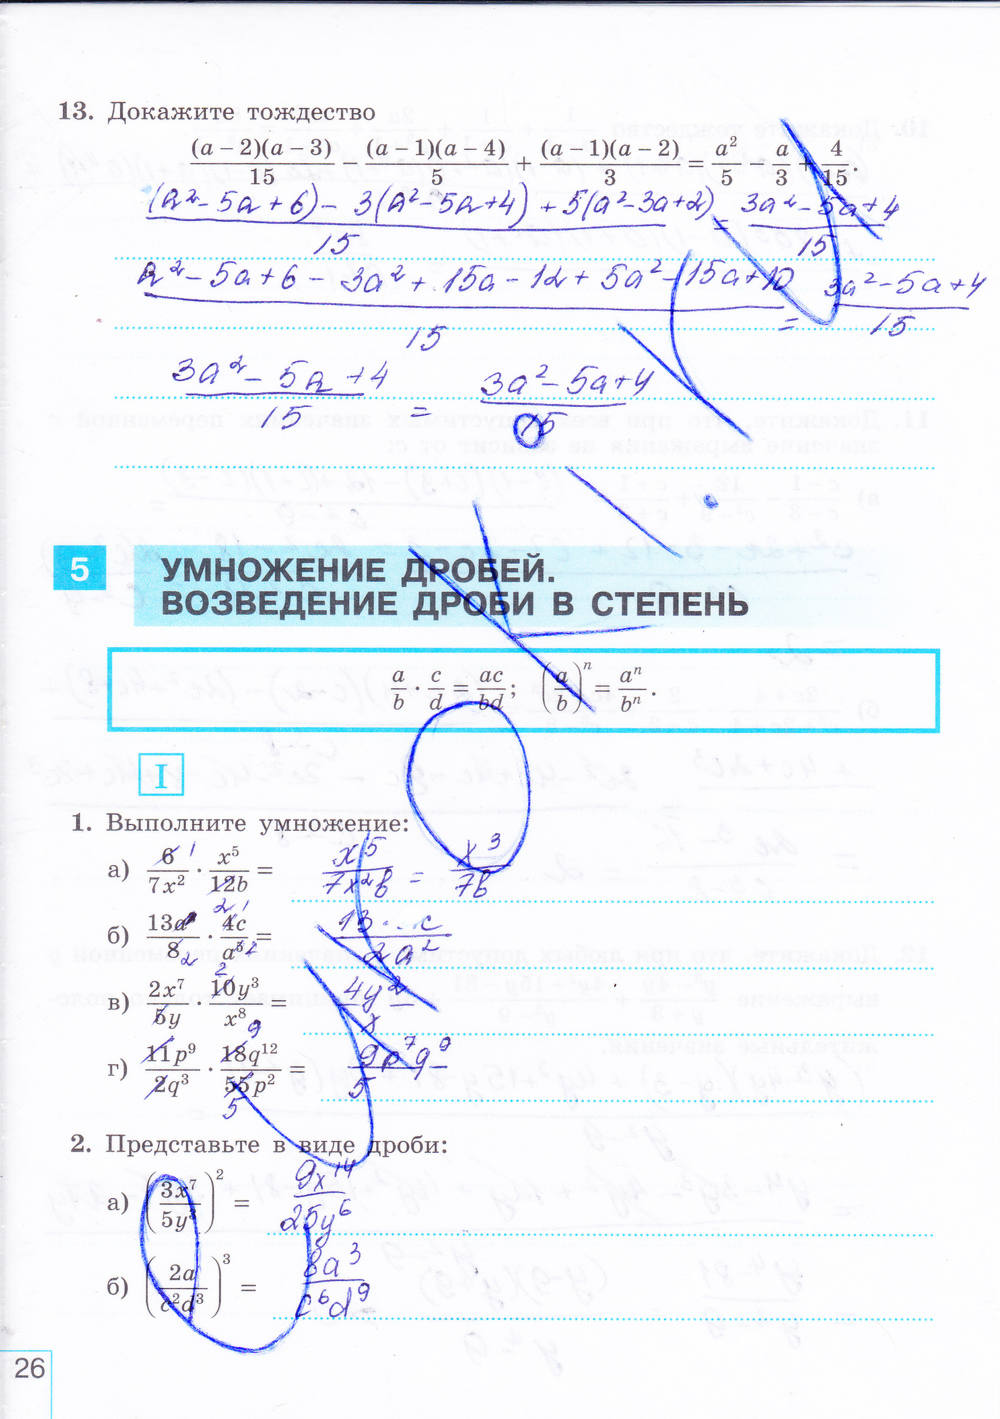 13. Докажите тождество
(a − 2)(a − 3)/15 − (a − 1)(a − 4)/5 + (a − 1)(a − 2)/3 = a²/5 − a/3 + 4/15.
((a² − 5a + 6) − 3(a² − 5a + 4) + 5(a² − 3a + 2))/15 = (3a² − 5a + 4)/15
(a² − 5a + 6 − 3a² + 15a − 12 + 5a² − 15a + 10)/15 = (3a² − 5a + 4)/15
(3a² − 5a + 4)/15 = (3a² − 5a + 4)/15
5 УМНОЖЕНИЕ ДРОБЕЙ.
ВОЗВЕДЕНИЕ ДРОБИ В СТЕПЕНЬ
a/b · c/d = ac/bd; (a/b)ⁿ = aⁿ/bⁿ.
I
1. Выполните умножение:
а) 6/7x² · x⁵/12b = x⁵/7x²b = x³/7b
б) 13a/8 · 4c/a³ = 13 c/2a²
в) 2x⁷/5y · 10y³/x⁸ = 4y²/x
г) 11p⁹/2q³ · 18q¹²/55p² = 9p⁷q⁹/5
2. Представьте в виде дроби:
а) (3x⁷/5y³)² = 9x¹⁴/25y⁶
б) (2a/c²d³)³ = 8a³/c⁶d⁹
26